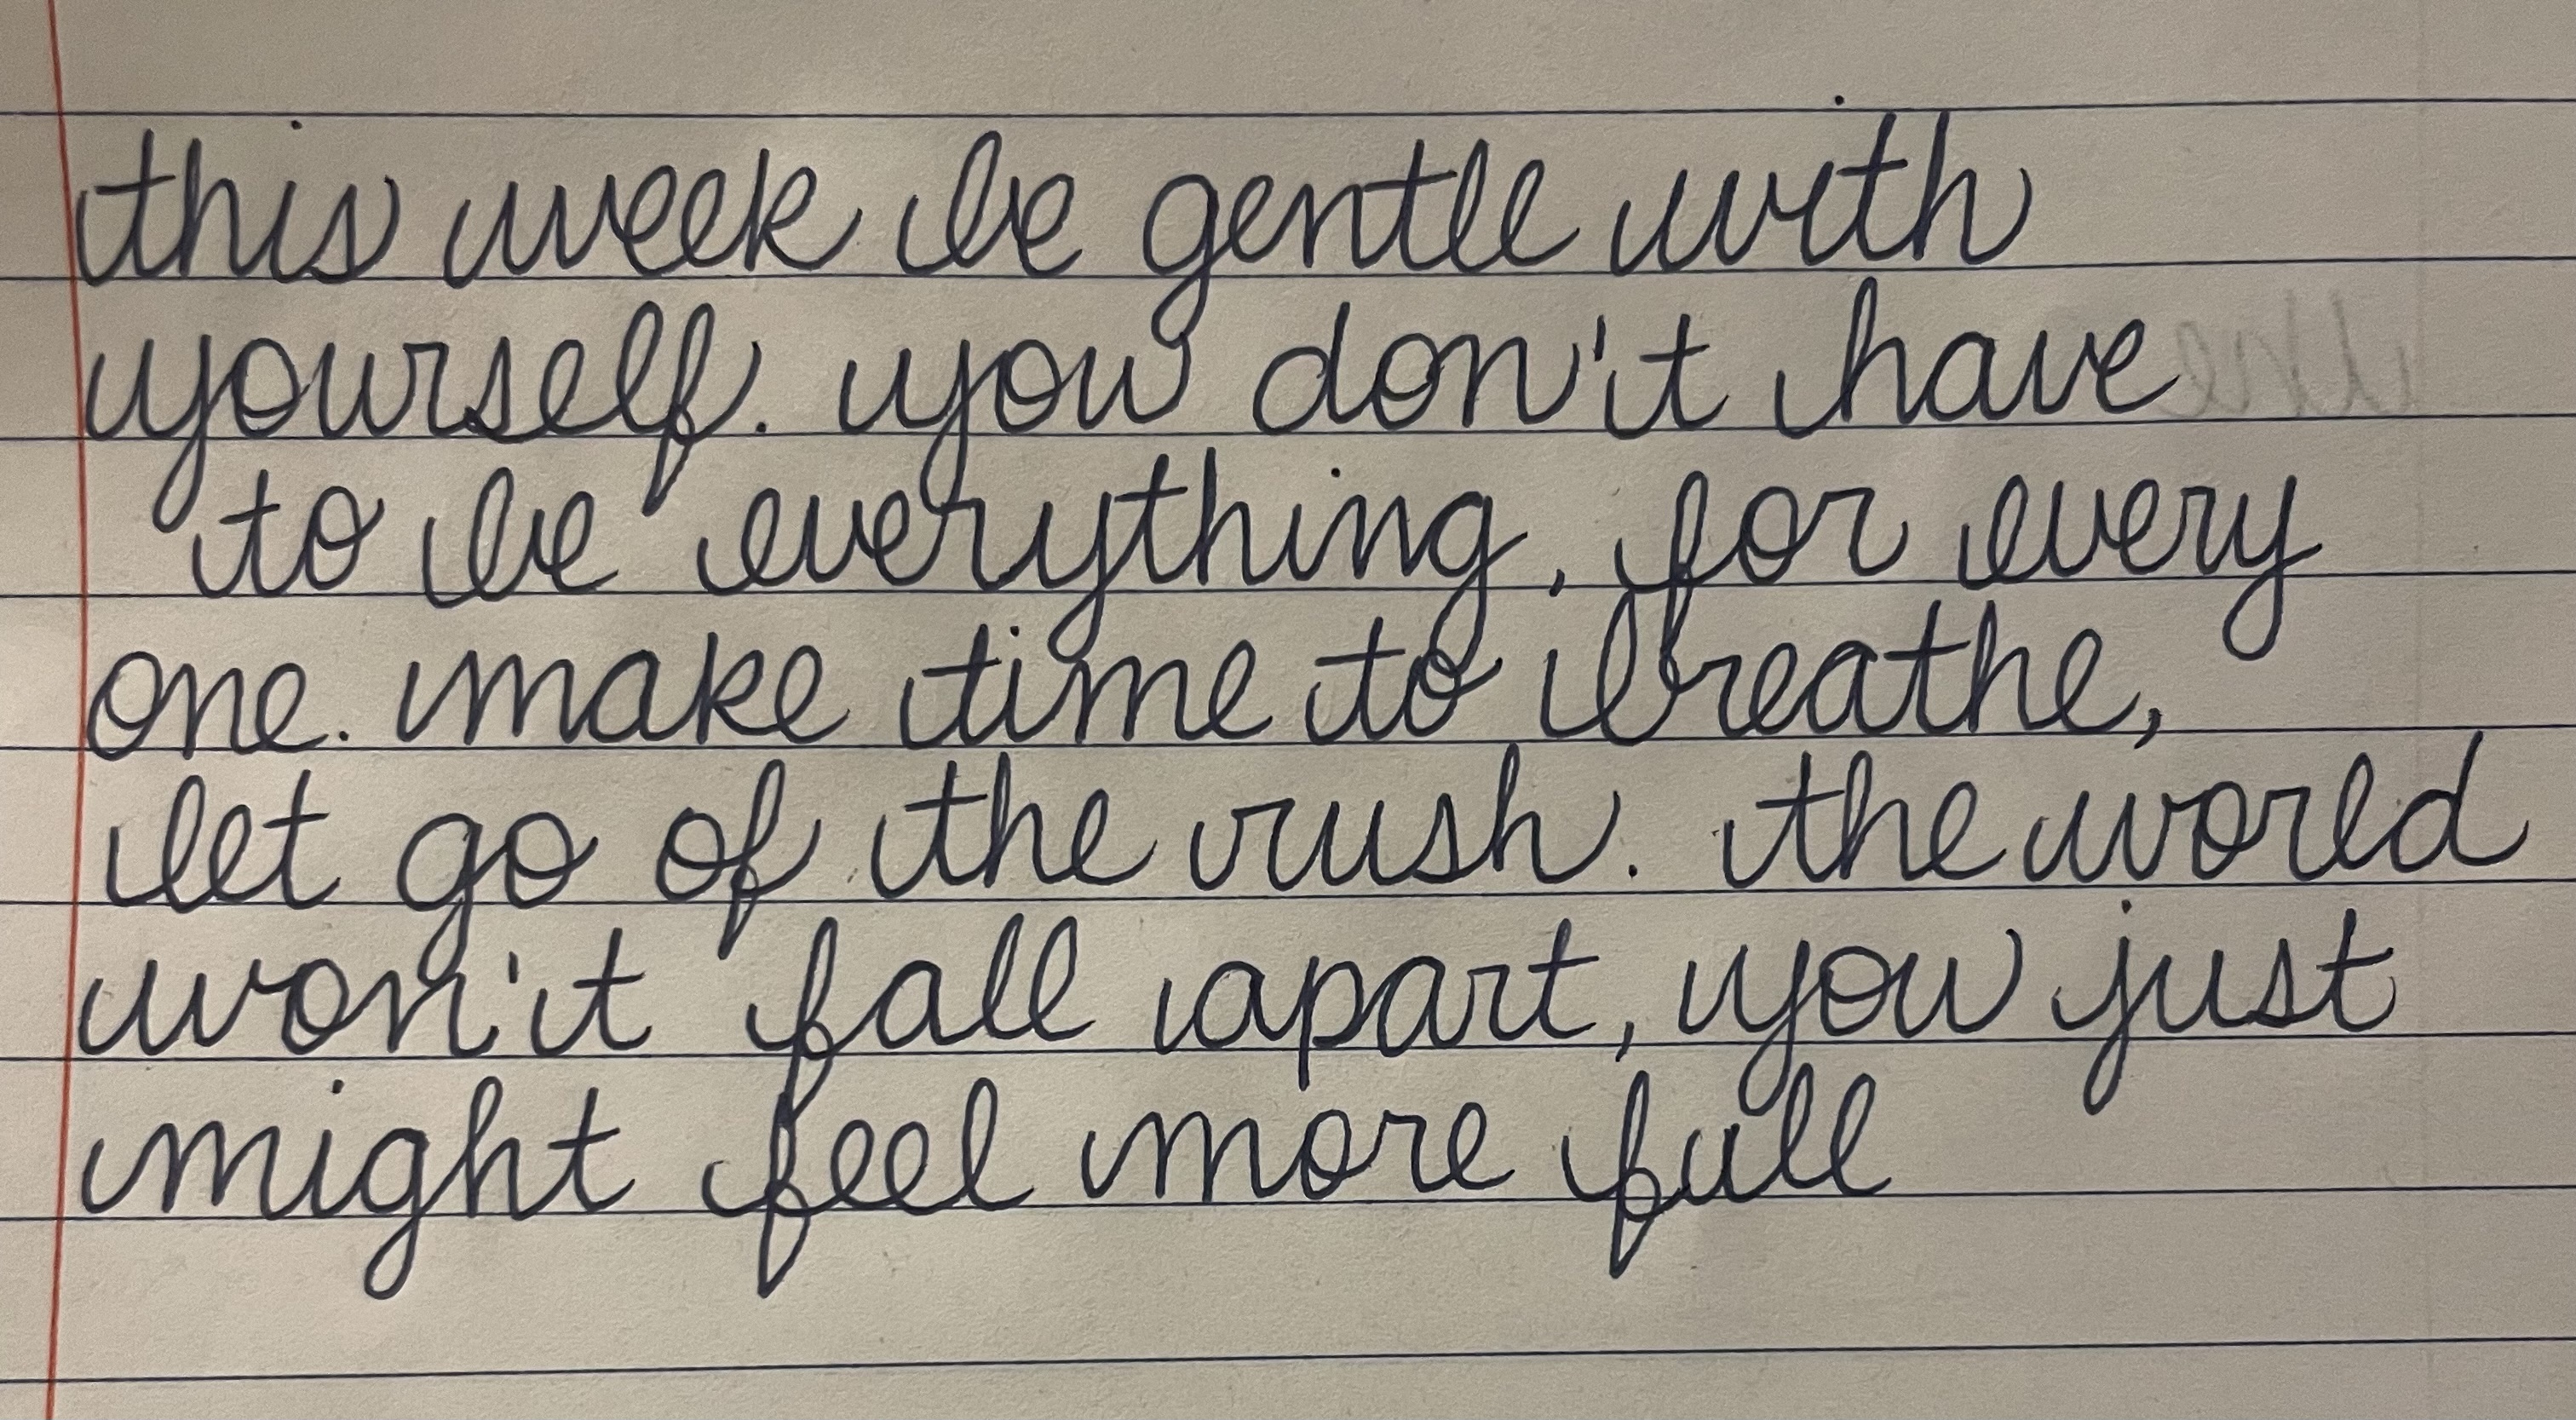 this week be gentle with
yourself. you don't have
to be everything, for every
one. make time to breathe,
let go of the rush. the world
won't fall apart, you just
might feel more full